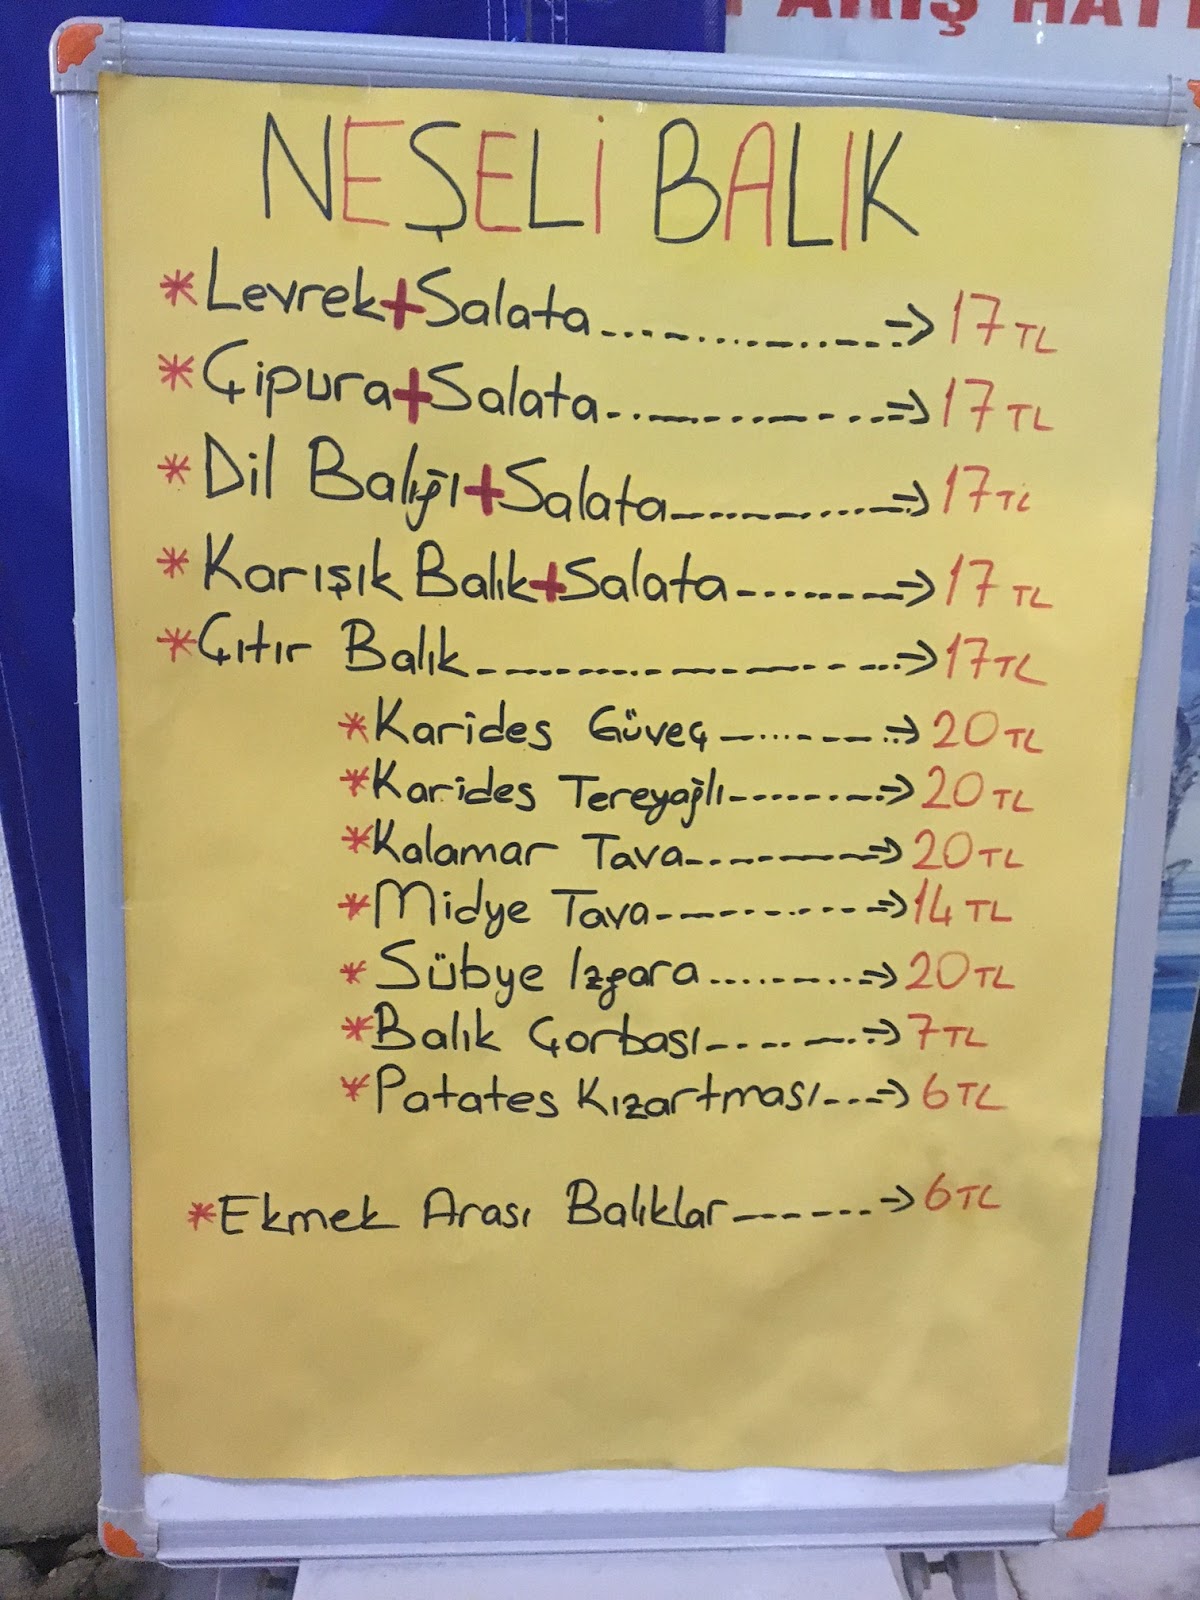 NEŞELİ BALIK
* Levrek+Salata 17 TL
* Çipura+Salata 17 TL
* Dil Balığı+Salata 17 TL
* Karışık Balık+Salata 17 TL
* Çıtır Balık 17 TL
* Karides Güveç 20 TL
* Karides Tereyağlı 20 TL
* Kalamar Tava 20 TL
* Midye Tava 14 TL
* Sübye Izgara 20 TL
* Balık Çorbası 7 TL
* Patates Kızartması 6 TL
* Ekmek Arası Balıklar 6 TL